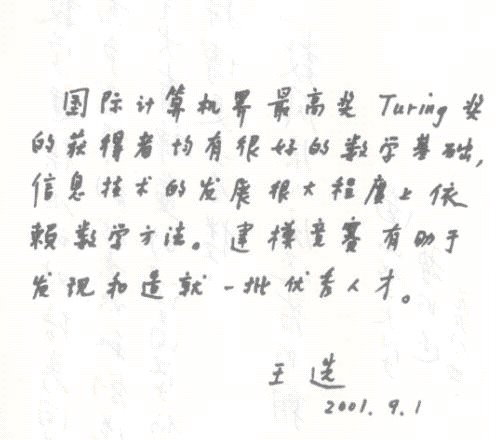 国际计算机界最高奖 Turing 奖
的获得者均有很好的数学基础,
信息技术的发展很大程度上依
赖数学方法。建模竞赛有助于
发现和造就一批优秀人才。
王选
2001.9.1